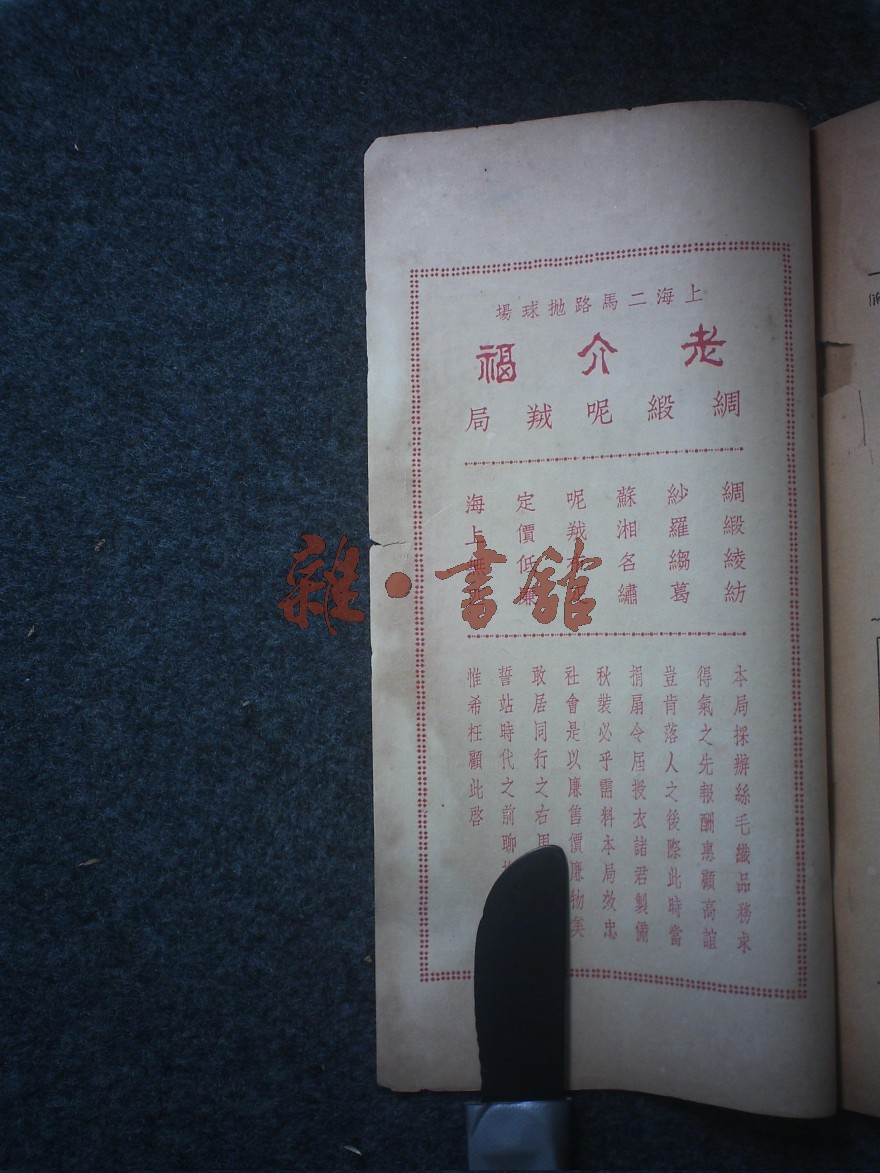 上海二馬路拋球場
老介福
綢緞呢羢局
綢緞綾紡
紗羅縐葛
蘇湘名繡
呢羢
定價低廉
海上無
本局採辦絲毛織品務求
得氣之先報酬惠顧高誼
豈肯落人之後際此時當
捐扇令屆授衣諸君製備
秋裝必乎需料本局效忠
社會是以廉售價廉物美
敢居同行之右
誓站時代之前聊
惟希枉顧此啓
雜·書舘